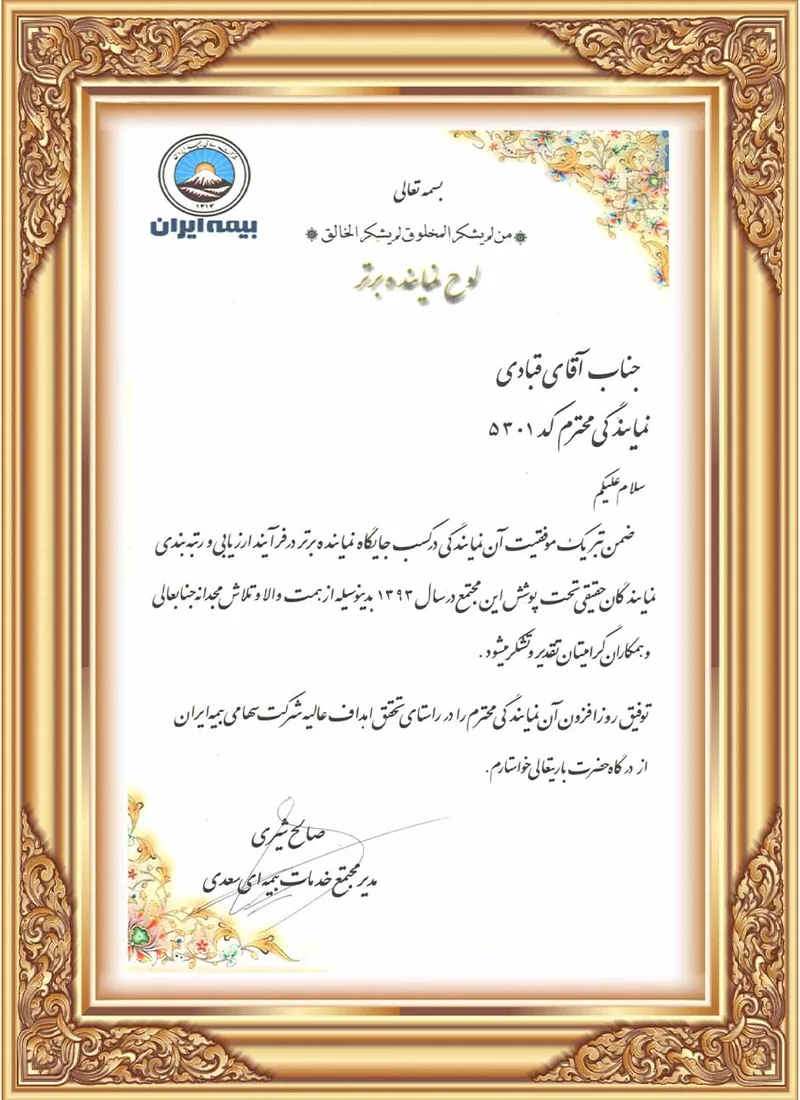 بیمه ایران
۱۳۱۴
بسمه تعالی
من لم یشکر المخلوق لم یشکر الخالق
لوح نماینده برتر
جناب آقای قبادی
نمایندگی محترم کد ۵۳۰۱
سلام علیکم
ضمن تبریک موفقیت آن نمایندگی در کسب جایگاه نماینده برتر در فرآیند ارزیابی و رتبه بندی
نمایندگان حقیقی تحت پوشش این مجتمع در سال ۱۳۹۳ بدینوسیله از همت والا و تلاش مجدانه جنابعالی
و همکاران گرامیتان تقدیر و تشکر میشود .
توفیق روزافزون آن نمایندگی محترم را در راستای تحقق اهداف عالیه شرکت سهامی بیمه ایران
از درگاه حضرت باریتعالی خواستارم.
صالح شیری
مدیر مجتمع خدمات بیمه ای سعدی